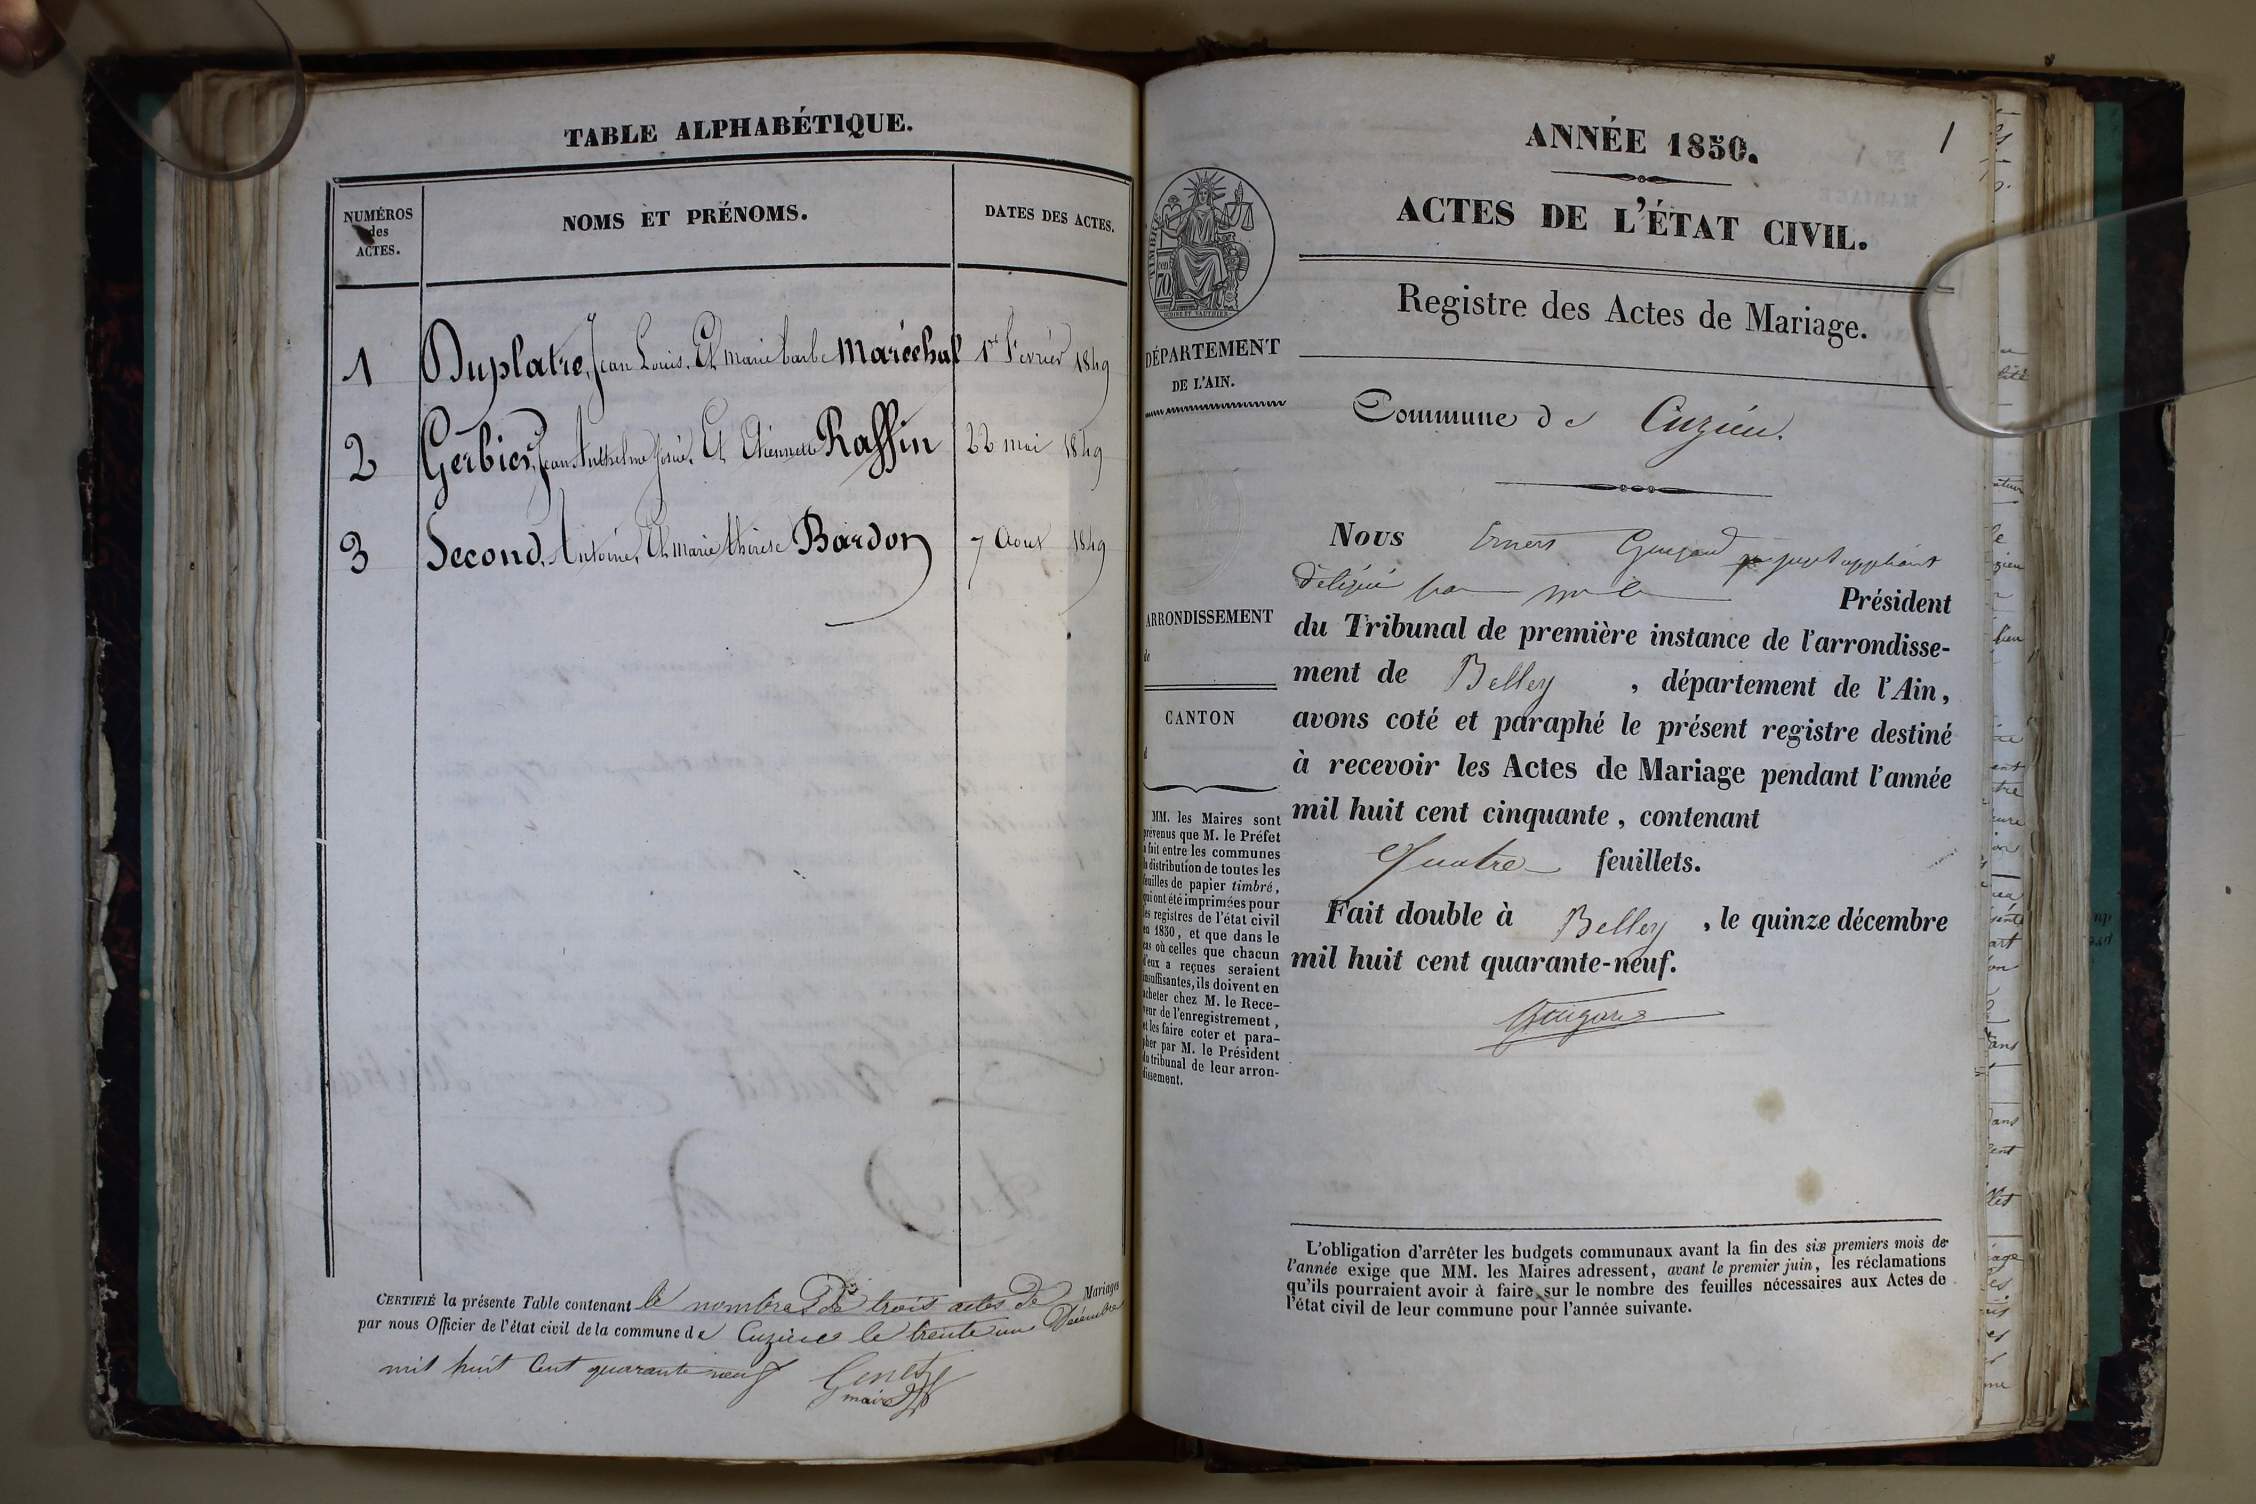 TABLE ALPHABÉTIQUE.
NUMÉROS
des
ACTES.
NOMS ET PRÉNOMS.
DATES DES ACTES.
1 Duplatre, Jean Louis, Et marie barbe Maréchal 1er Fevrier 1849
2 Gerbier, Jean Anthelme Et Etiennette Raffin 22 mai 1849
3 Second, Antoine, Et marie thérese Bardon 7 Aout 1849
CERTIFIÉ la présente Table contenant le nombre de trois actes de Mariages
par nous Officier de l'état civil de la commune de Cuzieu le trente un Décembre
mil huit Cent quarante neuf
maire
1
ANNÉE 1850.
ACTES DE L'ÉTAT CIVIL.
Registre des Actes de Mariage.
TIMBRE
70
DÉPARTEMENT
DE L'AIN.
Commune de Cuzieu.
Nous Ernest juge suppléant
délégué par Président
du Tribunal de première instance de l'arrondisse-
ment de Belley , département de l'Ain,
avons coté et paraphé le présent registre destiné
à recevoir les Actes de Mariage pendant l'année
mil huit cent cinquante, contenant
Quatre feuillets.
Fait double à Belley , le quinze décembre
mil huit cent quarante-neuf.
ARRONDISSEMENT
de
CANTON
d
MM. les Maires sont
prévenus que M. le Préfet
a fait entre les communes
la distribution de toutes les
feuilles de papier timbré,
qui ont été imprimées pour
les registres de l'état civil
en 1850, et que dans le
cas où celles que chacun
d'eux a reçues seraient
insuffisantes, ils doivent en
acheter chez M. le Rece-
veur de l'enregistrement,
et les faire coter et para-
pher par M. le Président
du tribunal de leur arron-
dissement.
L'obligation d'arrêter les budgets communaux avant la fin des six premiers mois de
l'année exige que MM. les Maires adressent, avant le premier juin, les réclamations
qu'ils pourraient avoir à faire sur le nombre des feuilles nécessaires aux Actes de
l'état civil de leur commune pour l'année suivante.